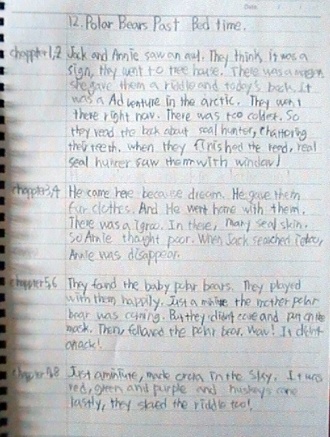 12. Polar Bears Past Bed time.
chapter1,2 Jack and Annie saw an owl. They think it was a
sign, they went to tree house. There was a
she gave them a riddle and today's book. It
was a Adventure in the arctic. They went
there right now. There was too colder. So
they read the book about seal hunter, chattering
their teeth. when they finished the read, real
seal hunter saw them with window!
chapter3,4 He came here because dream. He gave them
fur clothes. And He went home with them.
There was a igloo. In there, many seal skin.
So Annie thaight poor. When Jack searched igloo,
Annie was disappear.
chapter5,6 They found the baby polar bears. They played
with them happily. Just a minute the mother polar
bear was coming. But they didn't cave and put on the
mask. Then followed the polar bear. Wow! It didn't
attack!
chapter7,8 Just a minute, made in the sky. It was
red, green and purple and huskeys came
lastly, they solved the riddle too!.